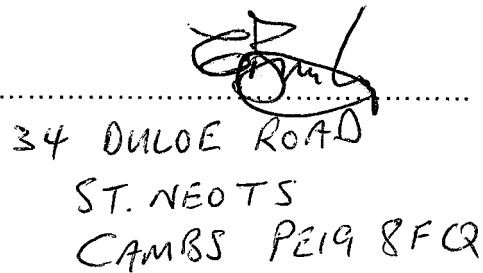 34 DULOE ROAD
ST. NEOTS
CAMBS PE19 8FQ